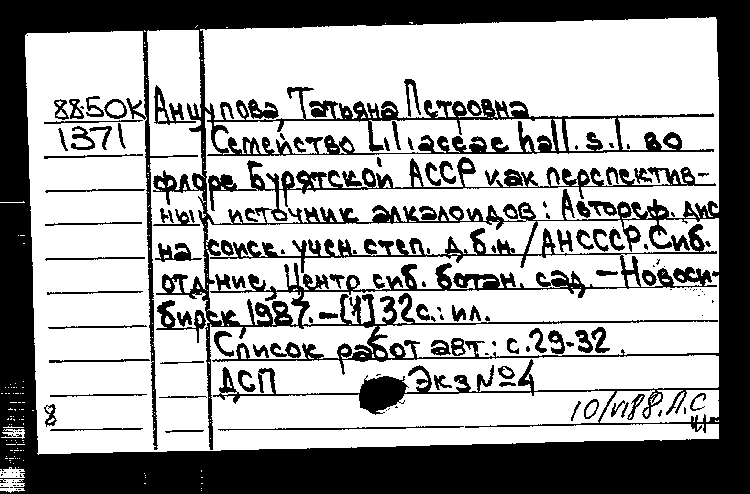 88-50К Анцупова, Татьяна Петровна
1371 Семейство Liliaceae hall. s.l. во
флоре Бурятской АССР как перспектив-
ный источник алкалоидов: Автореф. дис
на соиск. учен. степ. д.б.н. / АНСССР. Сиб.
отд-ние, Центр. сиб. ботан. сад. – Новоси-
бирск 1987. – [1] 32 с.: ил.
Список работ авт.: с. 29-32.
ДСП Экз №4
8 10/VI88. Л.С